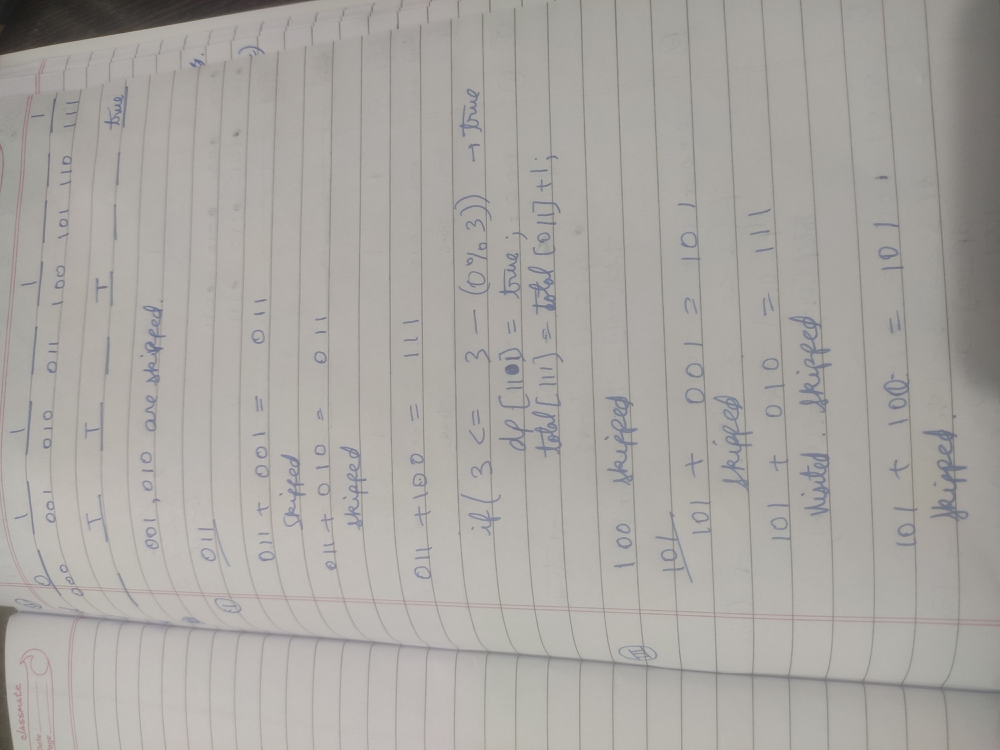 0 1 1 1 1
000 001 010 011 100 101 110 111
T T T true
001, 010 are skipped.
011
I
011 + 001 = 011
skipped
011 + 010 = 011
skipped
011 + 100 = 111
if ( 3 <= 3 - (0%3)) → true
dp [1101] = true;
total [111] = total [011] + 1;
100 skipped
II
101
101 + 001 = 101
skipped
101 + 010 = 111
Visited. skipped
101 + 100 = 101
skipped.
classmate
Date
Page